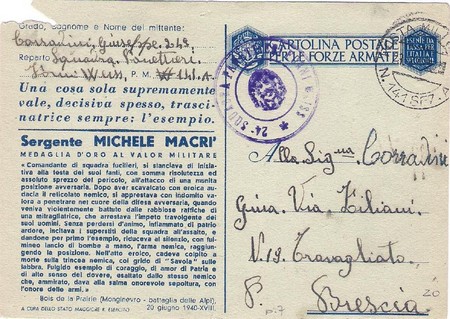 Grado, Cognome e Nome del mittente:
Corradini, Giuseppe
Reparto Squadra Panettieri
P. M. N 141. A.
Una cosa sola supremamente
vale, decisiva spesso, trasci-
natrice sempre: l'esempio.
Sergente MICHELE MACRI'
MEDAGLIA D'ORO AL VALOR MILITARE
« Comandante di squadra fucilieri, si slanciava di inizia-
tiva alla testa dei suoi fanti, con somma risolutezza ed
assoluto sprezzo del pericolo, all'attacco di una munita
posizione avversaria. Dopo aver scavalcato con eroica au-
dacia il reticolato nemico, si apprestava con indomito valo-
re a penetrare nel cuore della difesa avversaria, quando
veniva violentemente battuto dalle rabbiose raffiche di
una mitragliatrice, che arrestava l'impeto travolgente dei
suoi uomini. Senza perdersi d'animo, infiammato di patrio
ardore, incitava i superstiti della squadra all'assalto, e
dandone per primo l'esempio, riduceva al silenzio, con ful-
mineo lancio di bombe a mano, l'arma nemica, raggiun-
gendo la posizione. Nell'atto eroico, cadeva colpito a
morte sulla trincea nemica, col grido di "Savoia" sulle
labbra. Fulgido esempio di coraggio, di amor di Patria e
di alto senso del dovere, esaltato dallo stesso nemico
che, ammirato, dava alla salma onorevole sepoltura, con
l'onore delle armi. »
Bois de la Prairie (Monginevro - battaglia delle Alpi),
20 giugno 1940-XVIII.
A CURA DELLO STATO MAGGIORE R. ESERCITO
CARTOLINA POSTALE
PER LE FORZE ARMATE
ESENTE DA
TASSA PER
L'ITALIA
N. 141 SEZ. A
Alla Sig.na Corradini
Giura. Via Ziliani
N. 19. Travagliato
P. Brescia
20